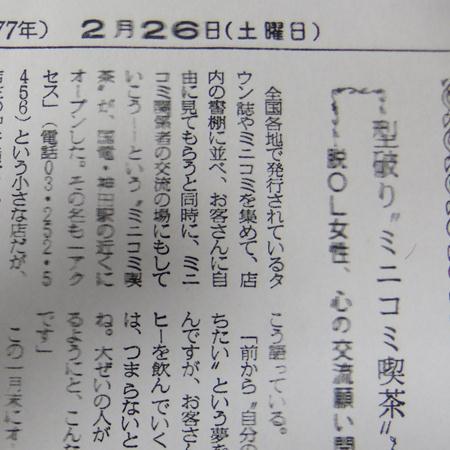 77年）　2月26日（土曜日）
型破り〝ミニコミ喫茶〟
脱OL女性、心の交流願い開
全国各地で発行されているタ
ウン誌やミニコミを集めて、店
内の書棚に並べ、お客さんに自
由に見てもらうと同時に、ミニ
コミ関係者の交流の場にもして
いこう――という〝ミニコミ喫
茶〟が、国電・神田駅の近くに
オープンした。その名も「アク
セス」（電話03・252・5
456）という小さな店だが、
こう語っている。
「前から〝自分の
ちたい〟という夢を
んですが、お客さん
ヒーを飲んでいく
は、つまらないと
ね。大ぜいの人が
るようにと、こんな
です」
この一月末にオー